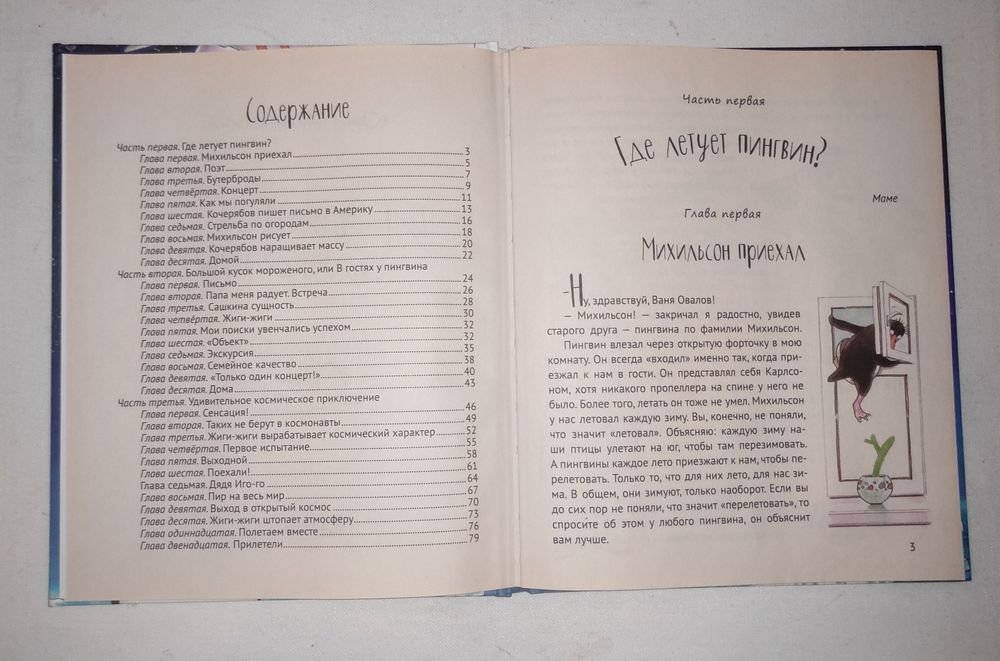 Содержание
Часть первая. Где летует пингвин?
Глава первая. Михильсон приехал 3
Глава вторая. Поэт 5
Глава третья. Бутерброды 7
Глава четвёртая. Концерт 9
Глава пятая. Как мы погуляли 11
Глава шестая. Кочерябов пишет письмо в Америку 13
Глава седьмая. Стрельба по огородам 16
Глава восьмая. Михильсон рисует 18
Глава девятая. Кочерябов наращивает массу 20
Глава десятая. Домой 22
Часть вторая. Большой кусок мороженого, или В гостях у пингвина
Глава первая. Письмо 24
Глава вторая. Папа меня радует. Встреча 26
Глава третья. Сашкина сущность 28
Глава четвёртая. Жиги-жиги 30
Глава пятая. Мои поиски увенчались успехом 32
Глава шестая. «Объект» 32
Глава седьмая. Экскурсия 35
Глава восьмая. Семейное качество 38
Глава девятая. «Только один концерт!» 40
Глава десятая. Дома 43
Часть третья. Удивительное космическое приключение
Глава первая. Сенсация! 46
Глава вторая. Таких не берут в космонавты 49
Глава третья. Жиги-жиги вырабатывает космический характер 52
Глава четвёртая. Первое испытание 55
Глава пятая. Выходной 58
Глава шестая. Поехали! 61
Глава седьмая. Дядя Иго-го 64
Глава восьмая. Пир на весь мир 67
Глава девятая. Выход в открытый космос 70
Глава десятая. Жиги-жиги штопает атмосферу 73
Глава одиннадцатая. Полетаем вместе 76
Глава двенадцатая. Прилетели 79
Часть первая
Где летует пингвин?
Маме
Глава первая
Михильсон приехал
–Ну, здравствуй, Ваня Овалов!
— Михильсон! — закричал я радостно, увидев
старого друга — пингвина по фамилии Михильсон.
Пингвин влезал через открытую форточку в мою
комнату. Он всегда «входил» именно так, когда при-
езжал к нам в гости. Он представлял себя Карлсо-
ном, хотя никакого пропеллера на спине у него не
было. Более того, летать он тоже не умел. Михильсон
у нас летовал каждую зиму. Вы, конечно, не поняли,
что значит «летовал». Объясняю: каждую зиму на-
ши птицы улетают на юг, чтобы там перезимовать.
А пингвины каждое лето приезжают к нам, чтобы пе-
релетовать. Только то, что для них лето, для нас зи-
ма. В общем, они зимуют, только наоборот. Если вы
до сих пор не поняли, что значит «перелетовать», то
спроси́те об этом у любого пингвина, он объяснит
вам лучше.
3